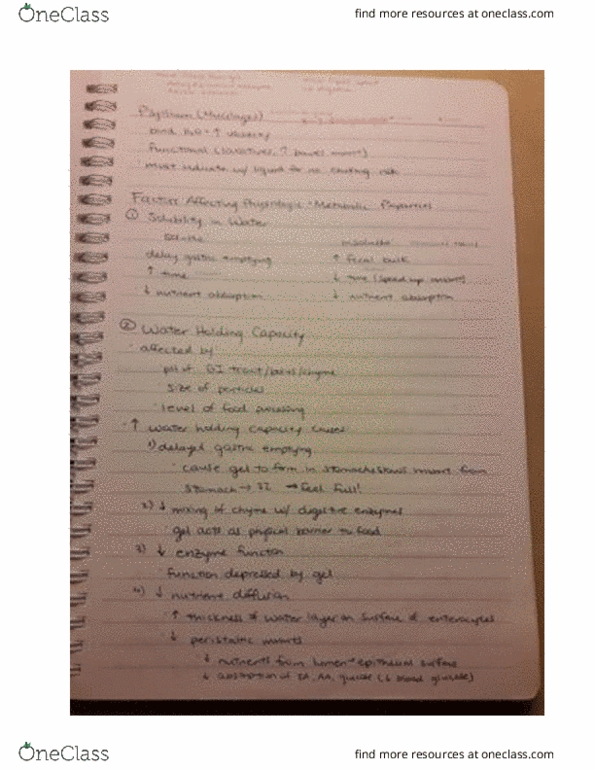 OneClass
find more resources at oneclass.com
Psyllium (Mucilages)
bind H₂O → ↑ viscosity
functional (laxatives, ↑ bowel mvmt)
must indicate w/ liquid for no choking risk
Factors Affecting Physiologic + Metabolic Properties
① Solubility in Water
soluble insoluble
delay gastric emptying ↑ fecal bulk
↑ time ↓ time (speed up mvmt)
↓ nutrient absorption ↓ nutrient absorption
② Water Holding Capacity
· affected by
pH of GI tract/ /chyme
size of particles
· level of food processing
· ↑ water holding capacity causes
1) delayed gastric emptying
· cause gel to form in stomach slows mvmt from
stomach → SI → feel full!
2) ↓ mixing of chyme w/ digestive enzymes
gel acts as physical barrier to food
3) ↓ enzyme function
· function depressed by gel
4) ↓ nutrient diffusion
· ↑ thickness of water layer on surface of enterocytes
· ↓ peristaltic mvmts
↓ nutrients from lumen → epithelial surface
↓ absorption of FA, AA, glucose (↓ blood glucose)
OneClass
find more resources at oneclass.com